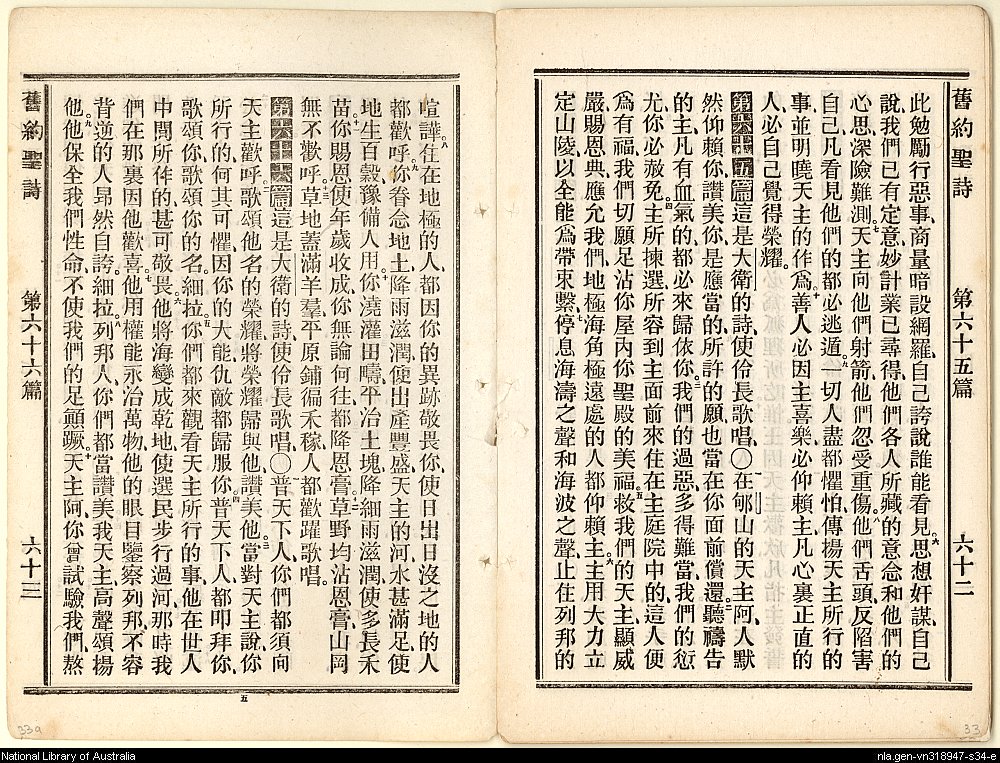 舊約聖詩 第六十五篇 六十二
此勉勵行惡事、商量暗設網羅、自己誇說、誰能看見。六思想奸謀、自己
說、我們已有定意、妙計業已尋得、他們各人所藏的意念、和他們的
心思、深險難測。七天主向他們射箭、他們忽受重傷。八他們舌頭、反陷害
自己、凡看見他們的、都必逃遁。九一切人盡都懼怕、傳揚天主所行的
事、並明曉天主的作爲。十善人必因主喜樂、必仰賴主、凡心裏正直的
人、必自己覺得榮耀。
第六十五篇 這是大衛的詩、使伶長歌唱、〇一在郇山的天主阿、人默
然仰賴你、讚美你、是應當的、所許的願、也當在你面前償還。二聽禱告
的主、凡有血氣的、都必來歸依你。三我們的過惡多得難當、我們的愆
尤、你必赦免。四主所揀選、所容到主面前來、住在主庭院中的、這人便
爲有福、我們切願足沾你屋內、你聖殿的美福。五救我們的天主、顯威
嚴、賜恩典、應允我們、地極海角極遠處的人、都仰賴主。六主用大力立
定山陵、以全能爲帶束繫。七停息海濤之聲、和海波之聲、止住列邦的
喧譁。八住在地極的人、都因你的異跡敬畏你、使日出日沒之地的人、
都歡呼。九你眷念地土、降雨滋潤、使出產豐盛、天主的河、水甚滿足、使
地生百穀、豫備人用。十你澆灌田疇、平冶土塊、降細雨滋潤、使多長禾
苗。十一你賜恩使年歲收成、你無論何往、都降恩膏。十二草野均沾恩膏、山岡
無不歡呼。十三草地蓋滿羊羣、平原鋪徧禾稼、人都歡躍歌唱。
第六十六篇 這是大衛的詩、使伶長歌唱、〇一普天下人、你們都須向
天主歡呼。二歌頌他名的榮耀、將榮耀歸與他、讚美他。三當對天主說、你
所行的、何其可懼、因你的大能、仇敵都歸服你。四普天下人、都叩拜你、
歌頌你、歌頌你的名、細拉。五你們都來觀看天主所行的事、他在世人
中間所作的、甚可敬畏。六他將海變成乾地、使選民步行過河、那時我
們在那裏因他歡喜。七他用權能永治萬物、他的眼目鑒察列邦、不容
背逆的人、昂然自誇、細拉。八列邦人、你們都當讚美我天主、高聲頌揚
他。九他保全我們性命、不使我們的足顚蹶。十天主阿、你曾試驗我們、熬
舊約聖詩 第六十六篇 六十三
五
33a
33
National Library of Australia
nla.gen-vn318947-s34-e